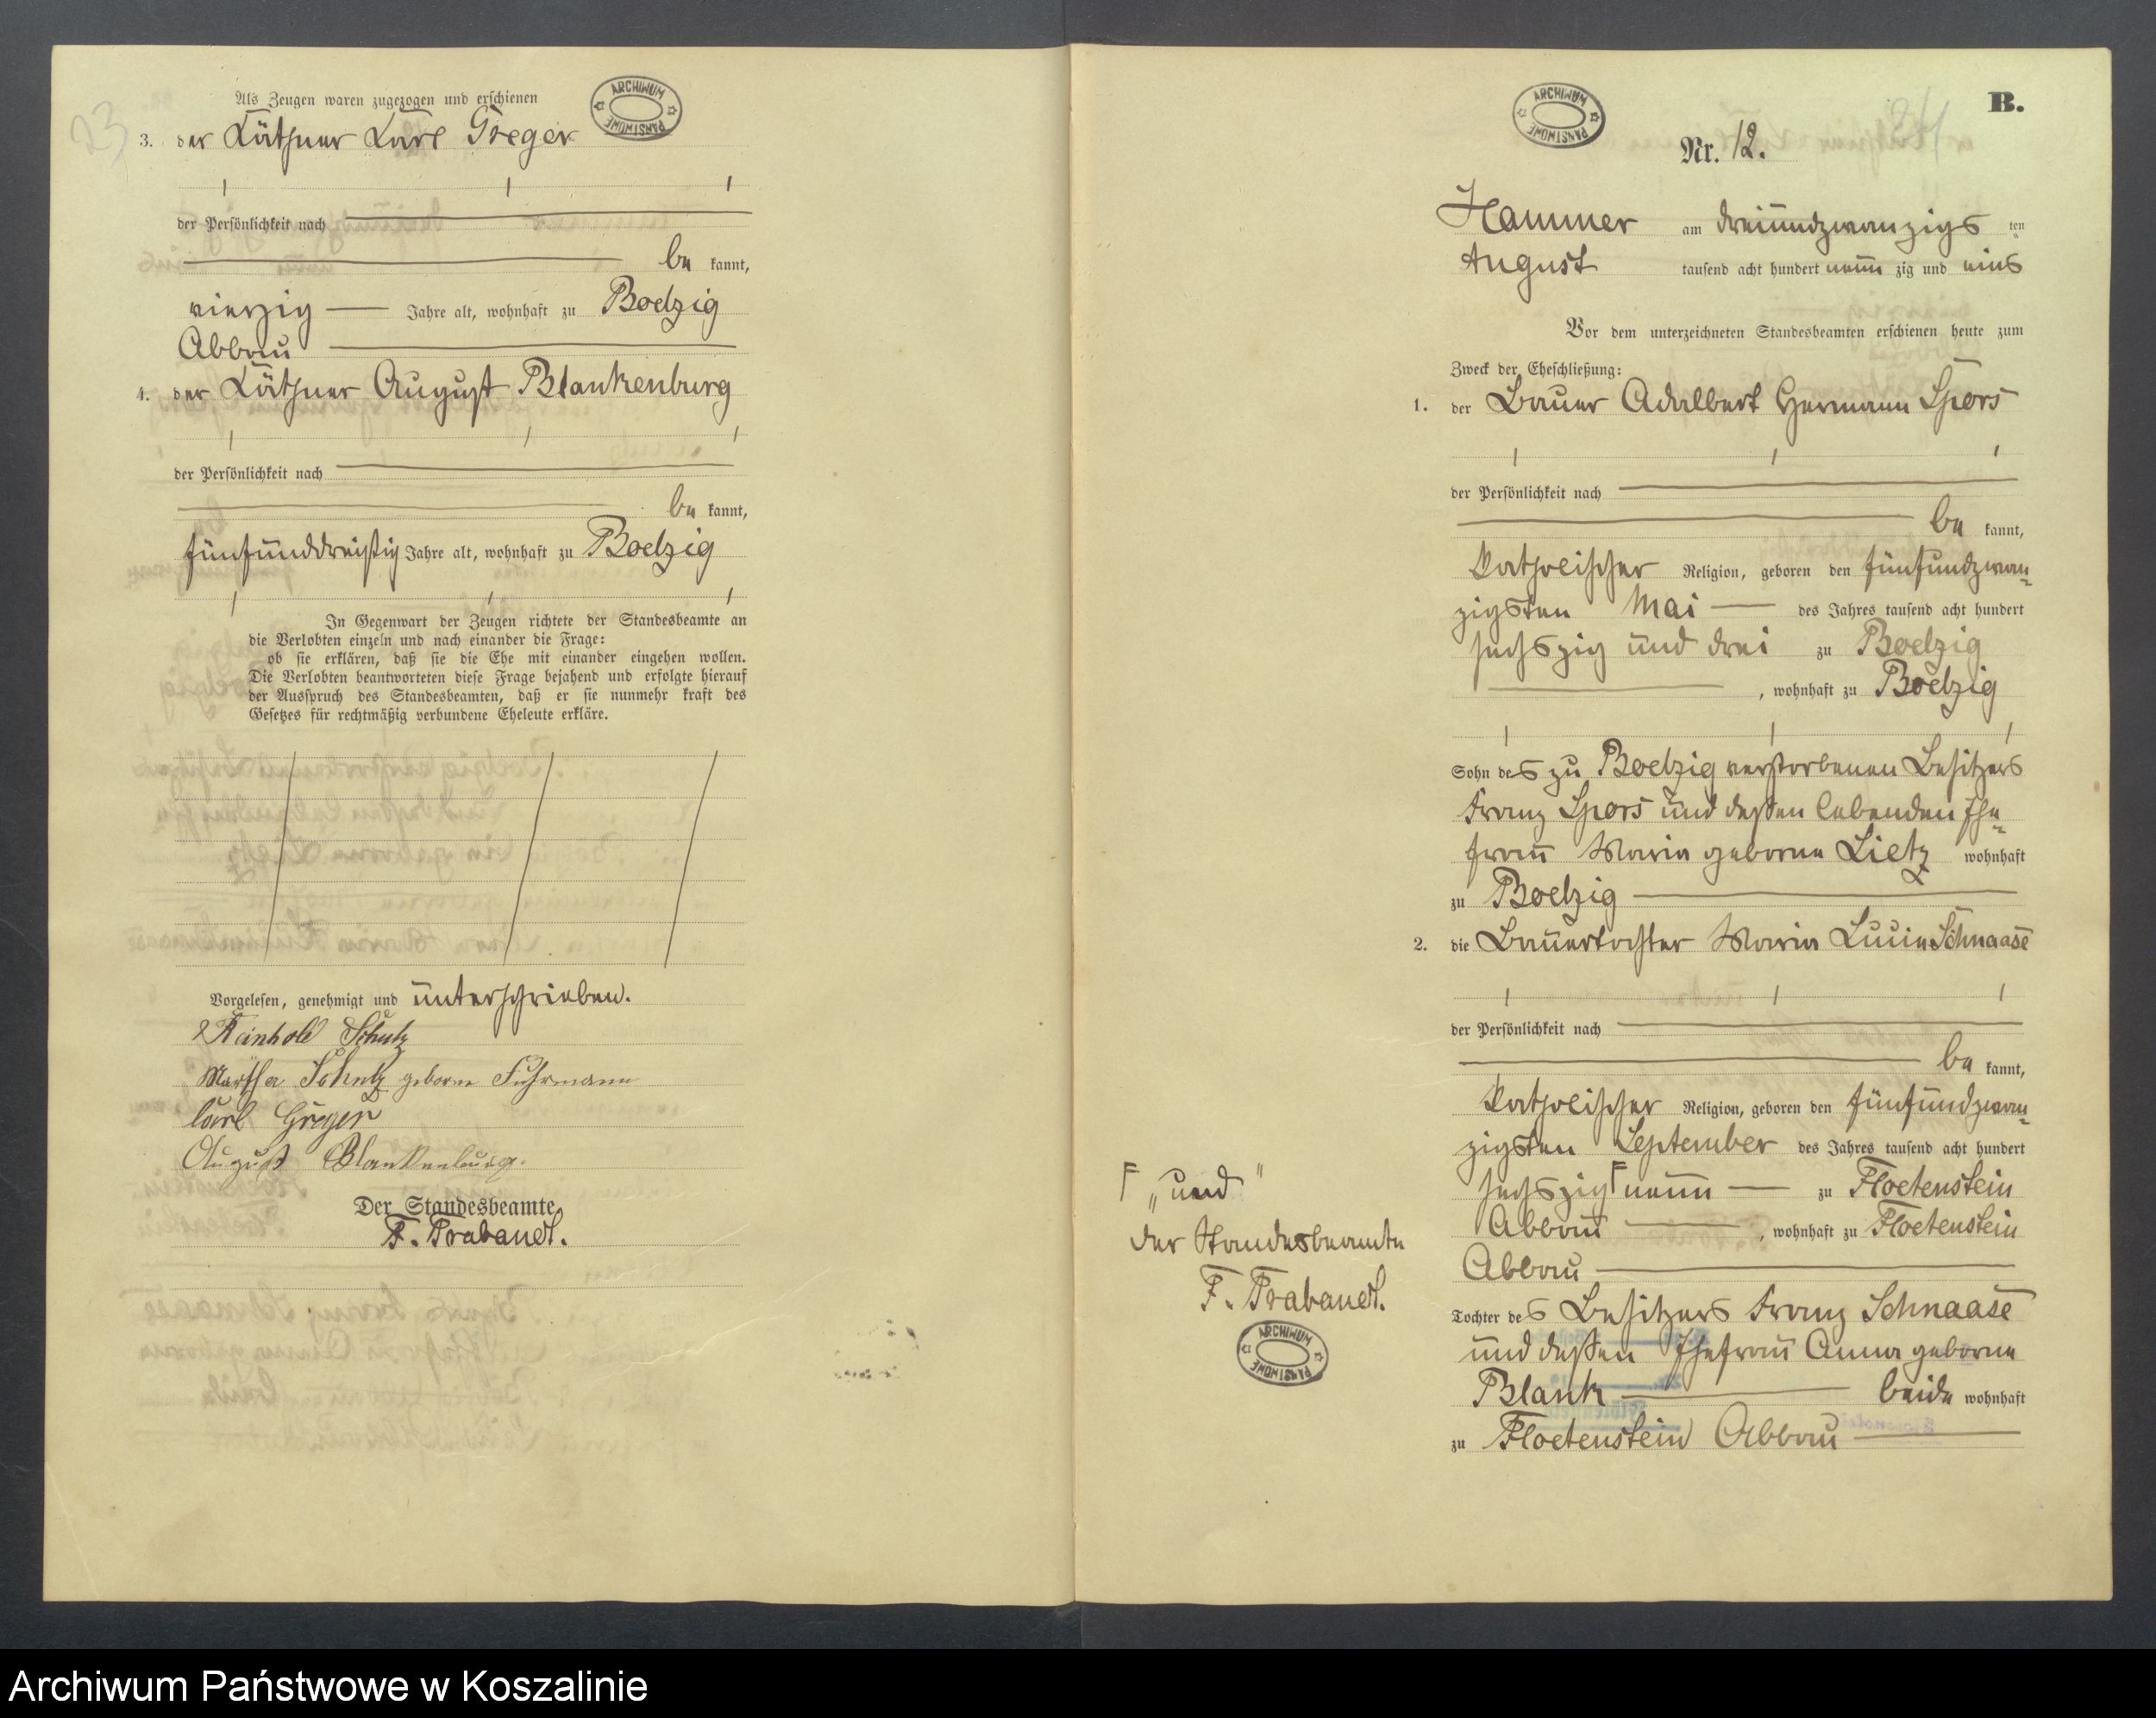 23
Als Zeugen waren zugezogen und erschienen
ARCHIWUM PAŃSTWOWE
3. der Käthner Karl Greger
der Persönlichkeit nach
be kannt,
vierzig — Jahre alt, wohnhaft zu Boelzig
Abbau
4. der Käthner August Blankenburg
der Persönlichkeit nach
be kannt,
fünfunddreißig Jahre alt, wohnhaft zu Boelzig
In Gegenwart der Zeugen richtete der Standesbeamte an
die Verlobten einzeln und nach einander die Frage:
ob sie erklären, daß sie die Ehe mit einander eingehen wollen.
Die Verlobten beantworteten diese Frage bejahend und erfolgte hierauf
der Ausspruch des Standesbeamten, daß er sie nunmehr kraft des
Gesetzes für rechtmäßig verbundene Eheleute erkläre.
Vorgelesen, genehmigt und unterschrieben.
Reinhold Schulz
Martha Schulz geborne Fuhrmann
Carl Greger
August Blankenburg.
Der Standesbeamte
F. Trabandt.
ARCHIWUM PAŃSTWOWE
B.
Nr. 12.
Hammer am dreiundzwanzigs ten
August tausend acht hundert neun zig und eins
Vor dem unterzeichneten Standesbeamten erschienen heute zum
Zweck der Eheschließung:
1. der Bauer Adalbert Hermann Spors
der Persönlichkeit nach
be kannt,
katholischer Religion, geboren den fünfundzwan-
zigsten Mai — des Jahres tausend acht hundert
sechszig und drei zu Boelzig
, wohnhaft zu Boelzig
Sohn des zu Boelzig verstorbenen Besitzers
Franz Spors und dessen lebenden Ehe-
frau Maria geborne Lietz wohnhaft
zu Boelzig
2. die Bauertochter Maria Lucia Schnaase
der Persönlichkeit nach
be kannt,
katholischer Religion, geboren den fünfundzwan-
zigsten September des Jahres tausend acht hundert
sechszig F neun — zu Floetenstein
Abbau , wohnhaft zu Floetenstein
Abbau
Tochter des Besitzers Franz Schnaase
und dessen Ehefrau Anna geborne
Blank beide wohnhaft
zu Floetenstein Abbau
F „und“
der Standesbeamte
F. Trabandt.
ARCHIWUM PAŃSTWOWE
Archiwum Państwowe w Koszalinie